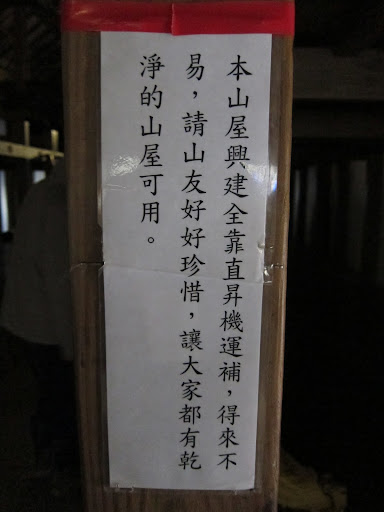 本山屋興建全靠直昇機運補，得來不
易，請山友好好珍惜，讓大家都有乾
淨的山屋可用。